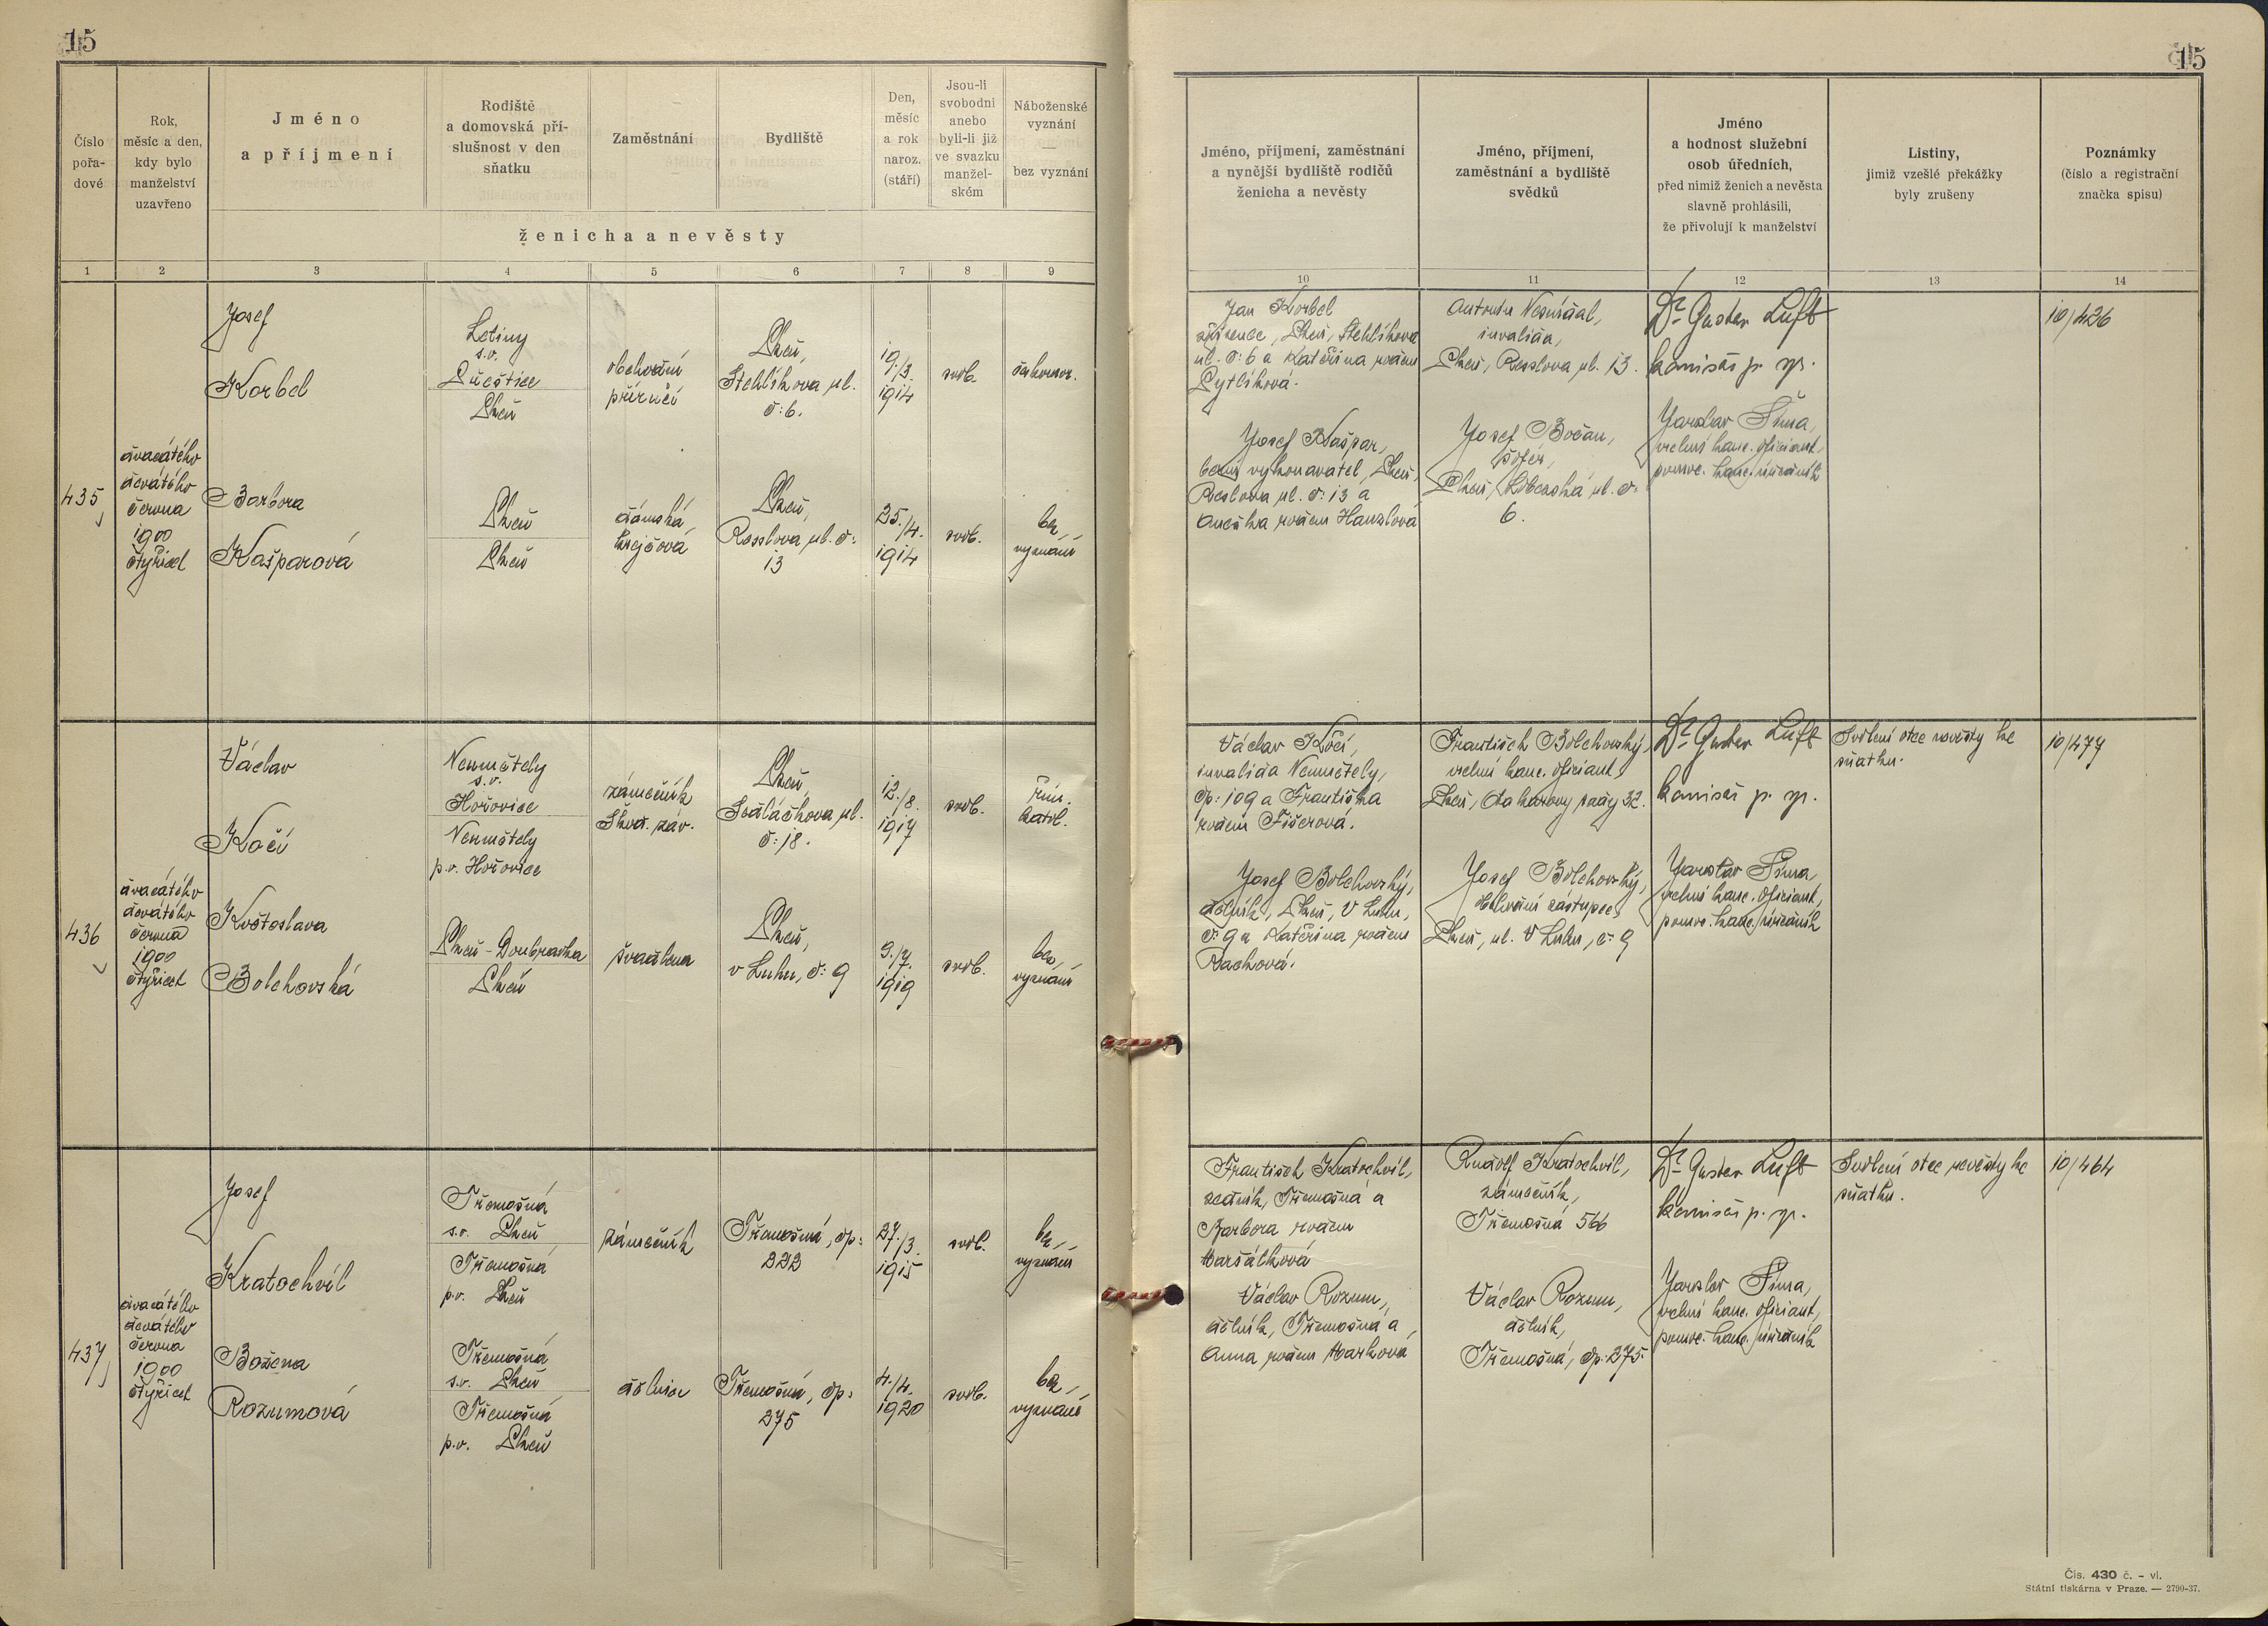 15
Číslo
pořa-
dové
Rok,
měsíc a den,
kdy bylo
manželství
uzavřeno
Jméno
a příjmení
Rodiště
a domovská pří-
slušnost v den
sňatku
Zaměstnání
Bydliště
Den,
měsíc
a rok
naroz.
(stáří)
Jsou-li
svobodni
anebo
byli-li již
ve svazku
manžel-
ském
Náboženské
vyznání
—
bez vyznání
ženicha a nevěsty
1 2 3 4 5 6 7 8 9
435
dvacátého
devátého
června
1900
čtyřicet
Josef
Korbel
Letiny
s.o.
Přeštice
Plzeň
obchodní
příručí
Plzeň,
Stehlíkova ul.
č: 6.
19./3.
1914
svob.
čsl. церк
Barbora
Kašparová
Plzeň
Plzeň
dámská
krejčová
Plzeň,
Resslova ul. č:
13
25./4.
1914
svob.
bez
vyznání
436
dvacátého
devátého
června
1900
čtyřicet
Václav
Kočí
Neumětely
s.o.
Hořovice
Neumětely
p.o. Hořovice
zámečník
Škod. záv.
Plzeň,
Sedláčkova ul.
č: 18.
12./8.
1917
svob.
řím.
katol.
Květoslava
Bolehovská
Plzeň-Doubravka
Plzeň
švadlena
Plzeň,
v Luhu, č: 9
9./7.
1919
svob.
bez
vyznání
437
dvacátého
devátého
června
1900
čtyřicet
Josef
Kratochvíl
Třemošná
s.o. Plzeň
Třemošná
p.o. Plzeň
zámečník
Třemošná, čp:
222
27./3.
1915
svob.
bez
vyznání
Božena
Rozumová
Třemošná
s.o. Plzeň
Třemošná
p.o. Plzeň
dělnice
Třemošná, čp:
275
4./4.
1920
svob.
bez
vyznání
15
Jméno, příjmení, zaměstnání
a nynější bydliště rodičů
ženicha a nevěsty
Jméno, příjmení,
zaměstnání a bydliště
svědků
Jméno
a hodnost služební
osob úředních,
před nimiž ženich a nevěsta
slavně prohlásili,
že přivolují k manželství
Listiny,
jimiž vzešlé překážky
byly zrušeny
Poznámky
(číslo a registrační
značka spisu)
10 11 12 13 14
Jan Korbel
zřízenec, Plzeň, Stehlíkova
ul. č: 6 a Kateřina rozen
Pytlíková.
Josef Kašpar,
berní vykonavatel, Plzeň,
Resslova ul. č: 13 a
Anežka rozen Hanzlová
Antonín
invalida,
Plzeň, Resslova ul. 13.
Josef Bočan,
šofér,
Plzeň, Koterská ul. č:
6.
Dr. Gustav Luft
komisař p. sp.
Jaroslav Šíma,
vrchní kanc. oficiant,
pomoc. kanc. úředník
10/426
Václav Kočí,
invalida Neumětely,
čp: 109 a Františka
rozen Fišerová.
Josef Bolehovský,
dělník, Plzeň, V Luhu,
č: 9 a Kateřina rozen
Rachová.
František Bolehovský,
vrchní kanc. oficiant
Plzeň, Otakarovy sady 32.
Josef Bolehovský,
obchodní zástupce,
Plzeň, ul. V Luhu, č: 9
Dr. Gustav Luft
komisař p. sp.
Jaroslav Šíma,
vrchní kanc. oficiant,
pomoc. kanc. úředník
Svolení otce nevěsty ke
sňatku.
10/477
František Kratochvíl,
zedník, Třemošná a
Barbora rozen
Maršálková
Václav Rozum,
dělník, Třemošná a
Anna rozen Marková
Rudolf Kratochvíl,
zámečník,
Třemošná 566
Václav Rozum,
dělník,
Třemošná, čp: 275.
Dr. Gustav Luft
komisař p. sp.
Jaroslav Šíma,
vrchní kanc. oficiant,
pomoc. kanc. úředník
Svolení otce nevěsty ke
sňatku.
10/464
Čís. 430 č. - vl.
Státní tiskárna v Praze. — 2790-37.